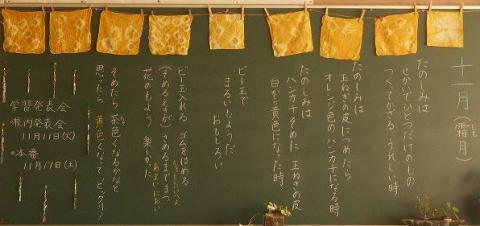 十一月(霜月)
しも
たのしみは
せかいでひとつだけのもの
つくってかざる うれしい時
たのしみは
玉ねぎの皮にそめたら
オレンジ色の ハンカチになる時
たのしみは
ハンカチそめに 玉ねぎの皮
白から黄色になった時
ビー玉で
まるいもようだ
おもしろい
ビー玉入れる ゴムをはめる
(そめるとちが) そめるまでまつ
花のもよう 楽しかた
そめたら 茶色くなるかなと
思ったら 黄色くなって、ビックリ!
学習発表会
*校内発表会
11月11日(火)
*本番
11月17日(土)